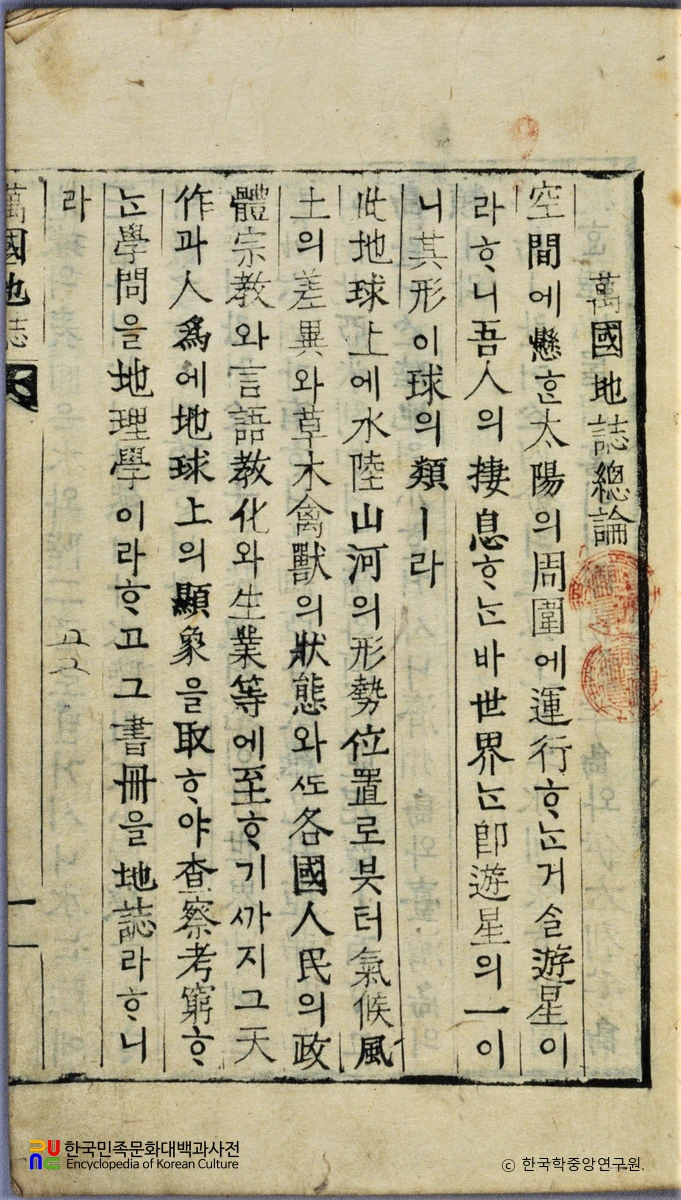 萬國地誌總論
空間에懸ᄒᆞᆫ太陽의周圍에運行ᄒᆞᄂᆞᆫ거슬遊星이
라ᄒᆞ니吾人의捿息ᄒᆞᄂᆞᆫ바世界ᄂᆞᆫ卽遊星의一이
니其形이球의類ㅣ라
此地球上에水陸山河의形勢位置로븟터氣候風
土의差異와草木禽獸의狀態와ᄯᅩ各國人民의政
體宗教와言語教化와生業等에至ᄒᆞ기ᄭᅡ지그天
作과人爲에地球上의顯象을取ᄒᆞ야査察考窮ᄒᆞ
ᄂᆞᆫ學問을地理學이라ᄒᆞ고그書冊을地誌라ᄒᆞ니
라
萬國地誌
한국민족문화대백과사전
Encyclopedia of Korean Culture
ⓒ 한국학중앙연구원